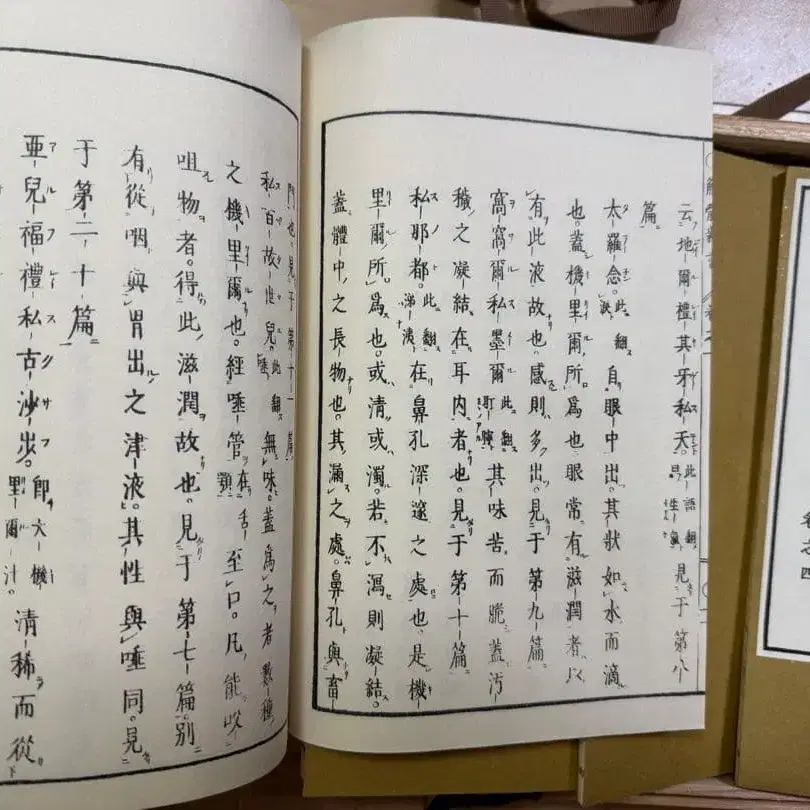 云地爾禮其牙私天。此語翻 見于第八
篇
太羅念。此翻淚 自眼中出。其狀如水而滴
也。蓋機里爾所爲也眼常有滋潤者以
有此液故也。感則多出。見于第九篇
窩窩爾私墨爾 此翻耵聹 其味苦而脆蓋汚
穢之凝結在耳内者也。見于第十篇
私那都。此翻涕洟 在鼻孔深邃之處也。是機
里爾所爲也。或清或濁。若不瀉則凝結。
蓋體中之長物也。其漏之處。鼻孔與畜
門也見于第十一篇
私百故世兒。此翻唾 無味。蓋爲之者數種
之機里爾也。經唾管在舌顎至口。凡能咬
咀物者。得此滋潤故也。見于第七篇。別
有從咽與胃出之津液。其性與唾同。見
于第二十篇
亜兒福禮私古沙歩。即大機里爾汁。清稀而從
卷之四